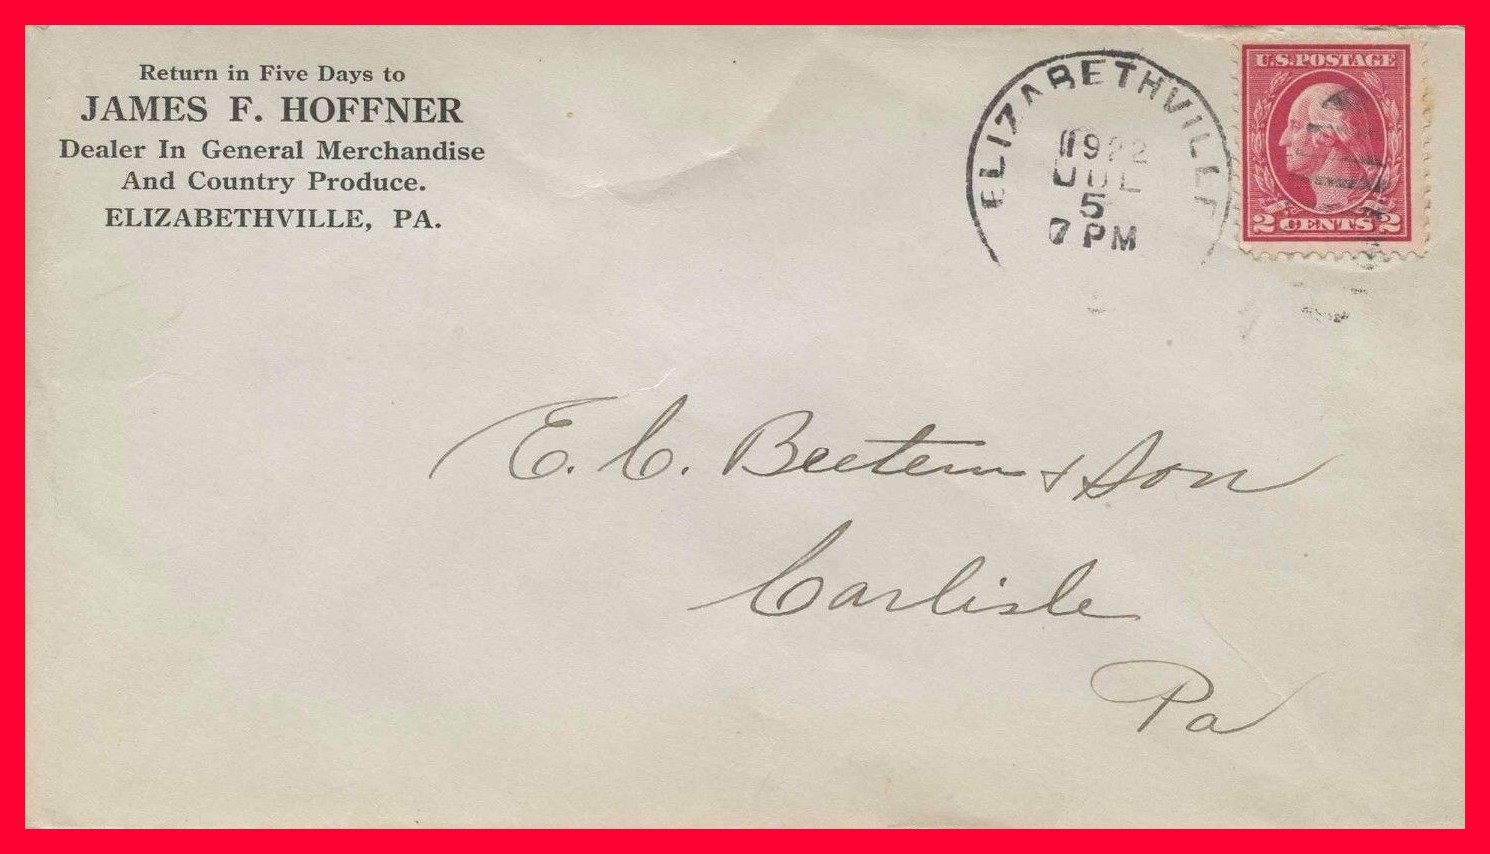 Return in Five Days to
JAMES F. HOFFNER
Dealer In General Merchandise
And Country Produce.
ELIZABETHVILLE, PA.
ELIZABETHVILLE
1922
JUL
5
7 PM
U.S. POSTAGE
2 CENTS 2
E. C. Beetem & Son
Carlisle
Pa